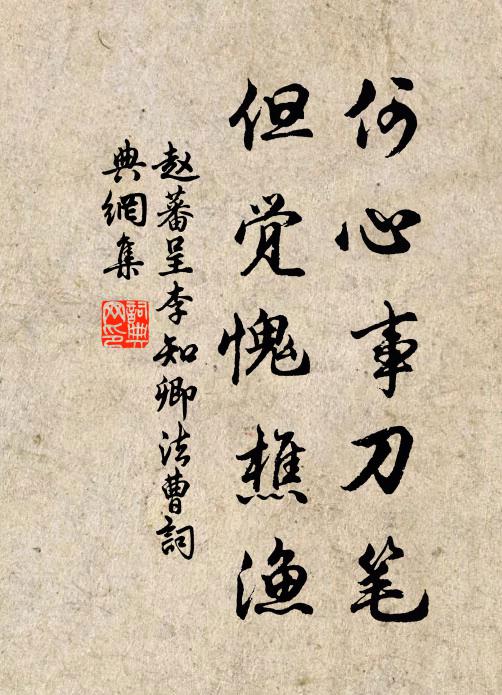 何心事刀笔
但觉愧樵渔
赵蕃呈李知卿法曹詞
典網集
詞典网印